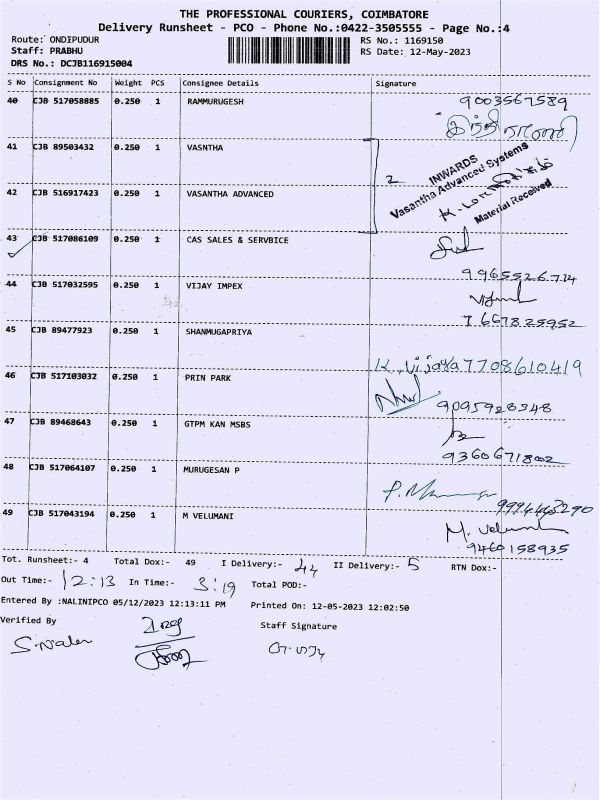 THE PROFESSIONAL COURIERS, COIMBATORE
Delivery Runsheet - PCO - Phone No.:0422-3505555 - Page No.:4
Route: ONDIPUDUR RS No.: 1169150
Staff: PRABHU RS Date: 12-May-2023
DRS No.: DCJB116915004
S No Consignment No Weight PCS Consignee Details Signature
40 CJB 517058885 0.250 1 RAMMURUGESH 9003567589
இந்திராணி
41 CJB 89503432 0.250 1 VASNTHA
2 INWARDS
Vasantha Advanced Systems
Material Received
42 CJB 516917423 0.250 1 VASANTHA ADVANCED
43 CJB 517086109 0.250 1 CAS SALES & SERVBICE
9965526714
44 CJB 517032595 0.250 1 VIJAY IMPEX
7667825952
45 CJB 89477923 0.250 1 SHANMUGAPRIYA
K. Vijaya 7708610419
46 CJB 517103032 0.250 1 PRIN PARK
9095928348
47 CJB 89468643 0.250 1 GTPM KAN MSBS
9360671802
48 CJB 517064107 0.250 1 MURUGESAN P
49 CJB 517043194 0.250 1 M VELUMANI
M. Velumani
9460158935
Tot. Runsheet:- 4 Total Dox:- 49 I Delivery:- 44 II Delivery:- 5 RTN Dox:-
Out Time:- 12:13 In Time:- 3:19 Total POD:-
Entered By :NALINIPCO 05/12/2023 12:13:11 PM Printed On: 12-05-2023 12:02:50
Verified By Staff Signature